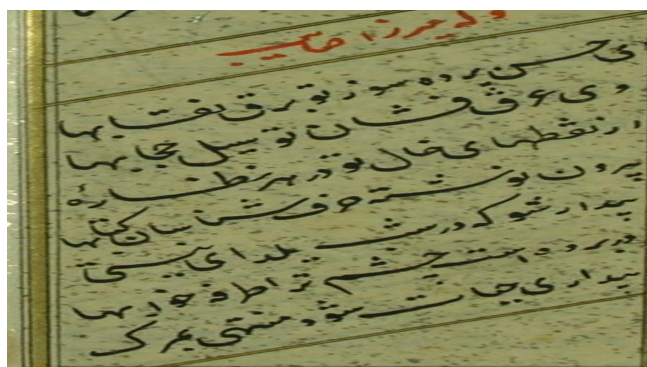 وله میرزا صائب
ای حسن پرده سوز تو برق نقابها
وی عرق فشان تو سیل حجابها
از نقطهای خال تو در هر نظاره
بیرون نوشته حرف شناسان کتابها
بیدار شو که در شب یلدای نیستی
در پرده است چشم ترا طرفه خوابها
بیداری حیات شود منتهی بمرک